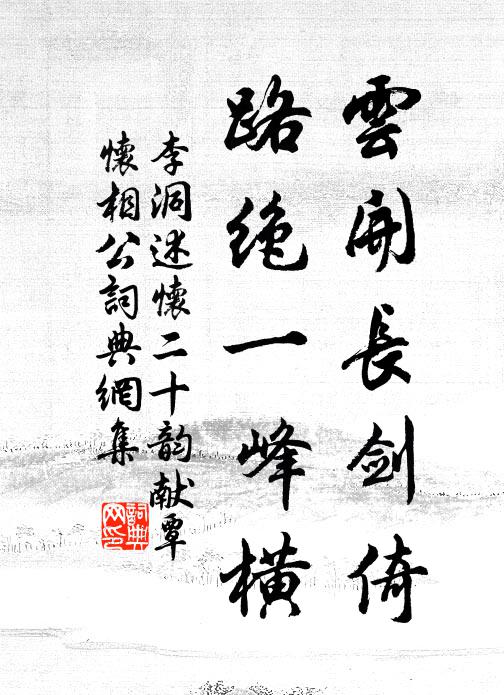 雲開長劍倚
路絶一峰橫
李洞述懷二十韵献覃
懷相公詞典網集
詞典
网印